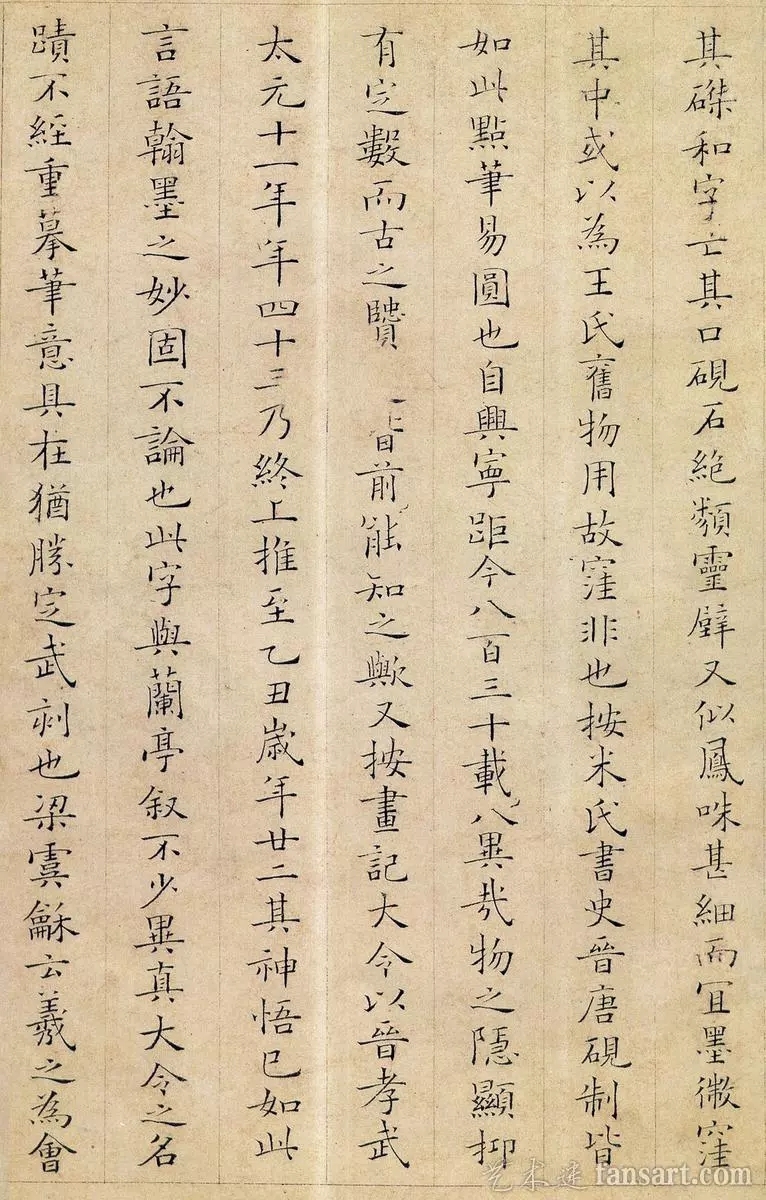 其磔和字亡其口硯石絶類靈璧又似鳳咮甚細而宜墨微窪
其中或以為王氏舊物用故窪非也按米氏書史晉唐硯制皆
如此點筆易圓也自興寧距今八百三十載八異㢤物之隱顯抑
有定數而古之賢 前能知之歟又按畫記大令以晉孝武
太元十一年年四十三乃終上推至乙丑歲年廿二其神悟已如此
言語翰墨之妙固不論也此字與蘭亭叙不少異真大令之名
蹟不經重摹筆意具在猶勝定武刻也梁虞龢云羲之為會
艺术迷 fansart.com